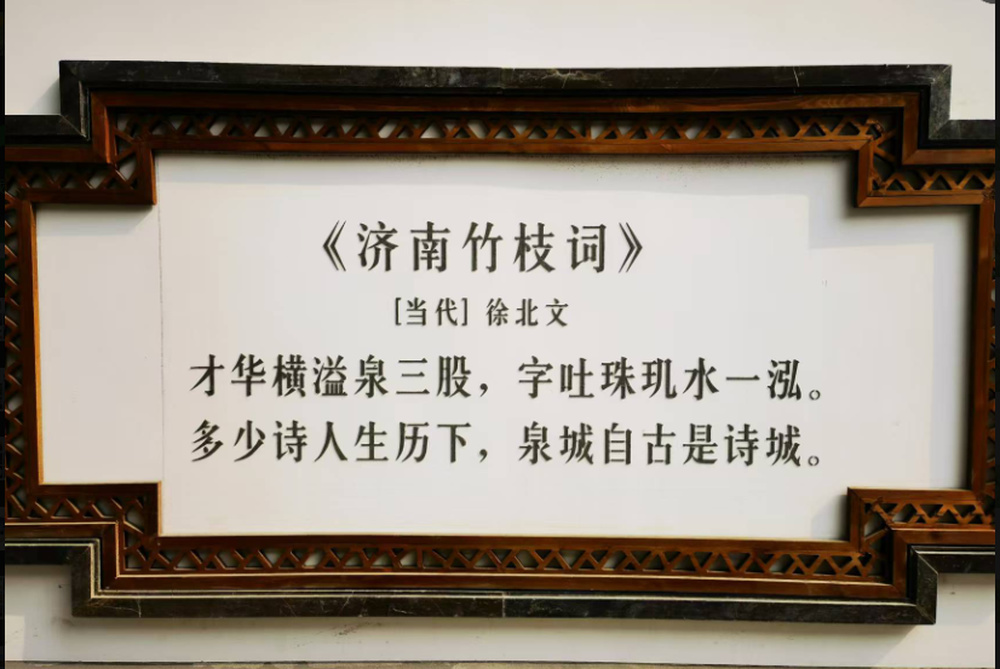 《济南竹枝词》
[当代] 徐北文
才华横溢泉三股，字吐珠玑水一泓。
多少诗人生历下，泉城自古是诗城。